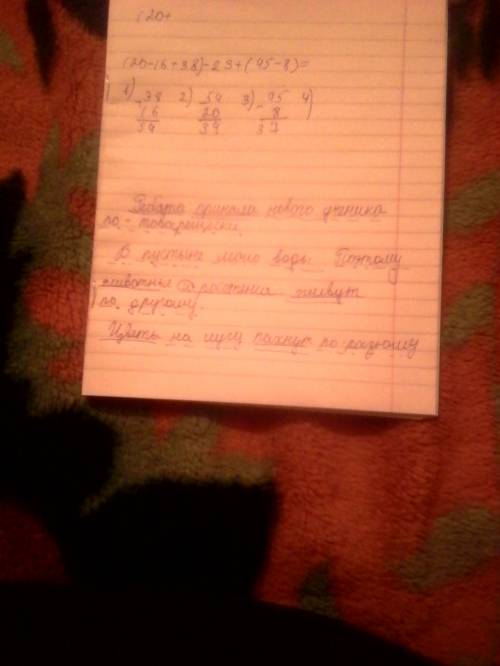 (20+
(20-16+38)-23+(45-8)=
1) 38 2) 54 3) 45 4)
16 20 8
54 34 37
Ребята приняли нового ученика
по-товарищески.
В пустыне мало воды. Поэтому
животные и растения живут
по другому.
Цветы на лугу пахнут по разному